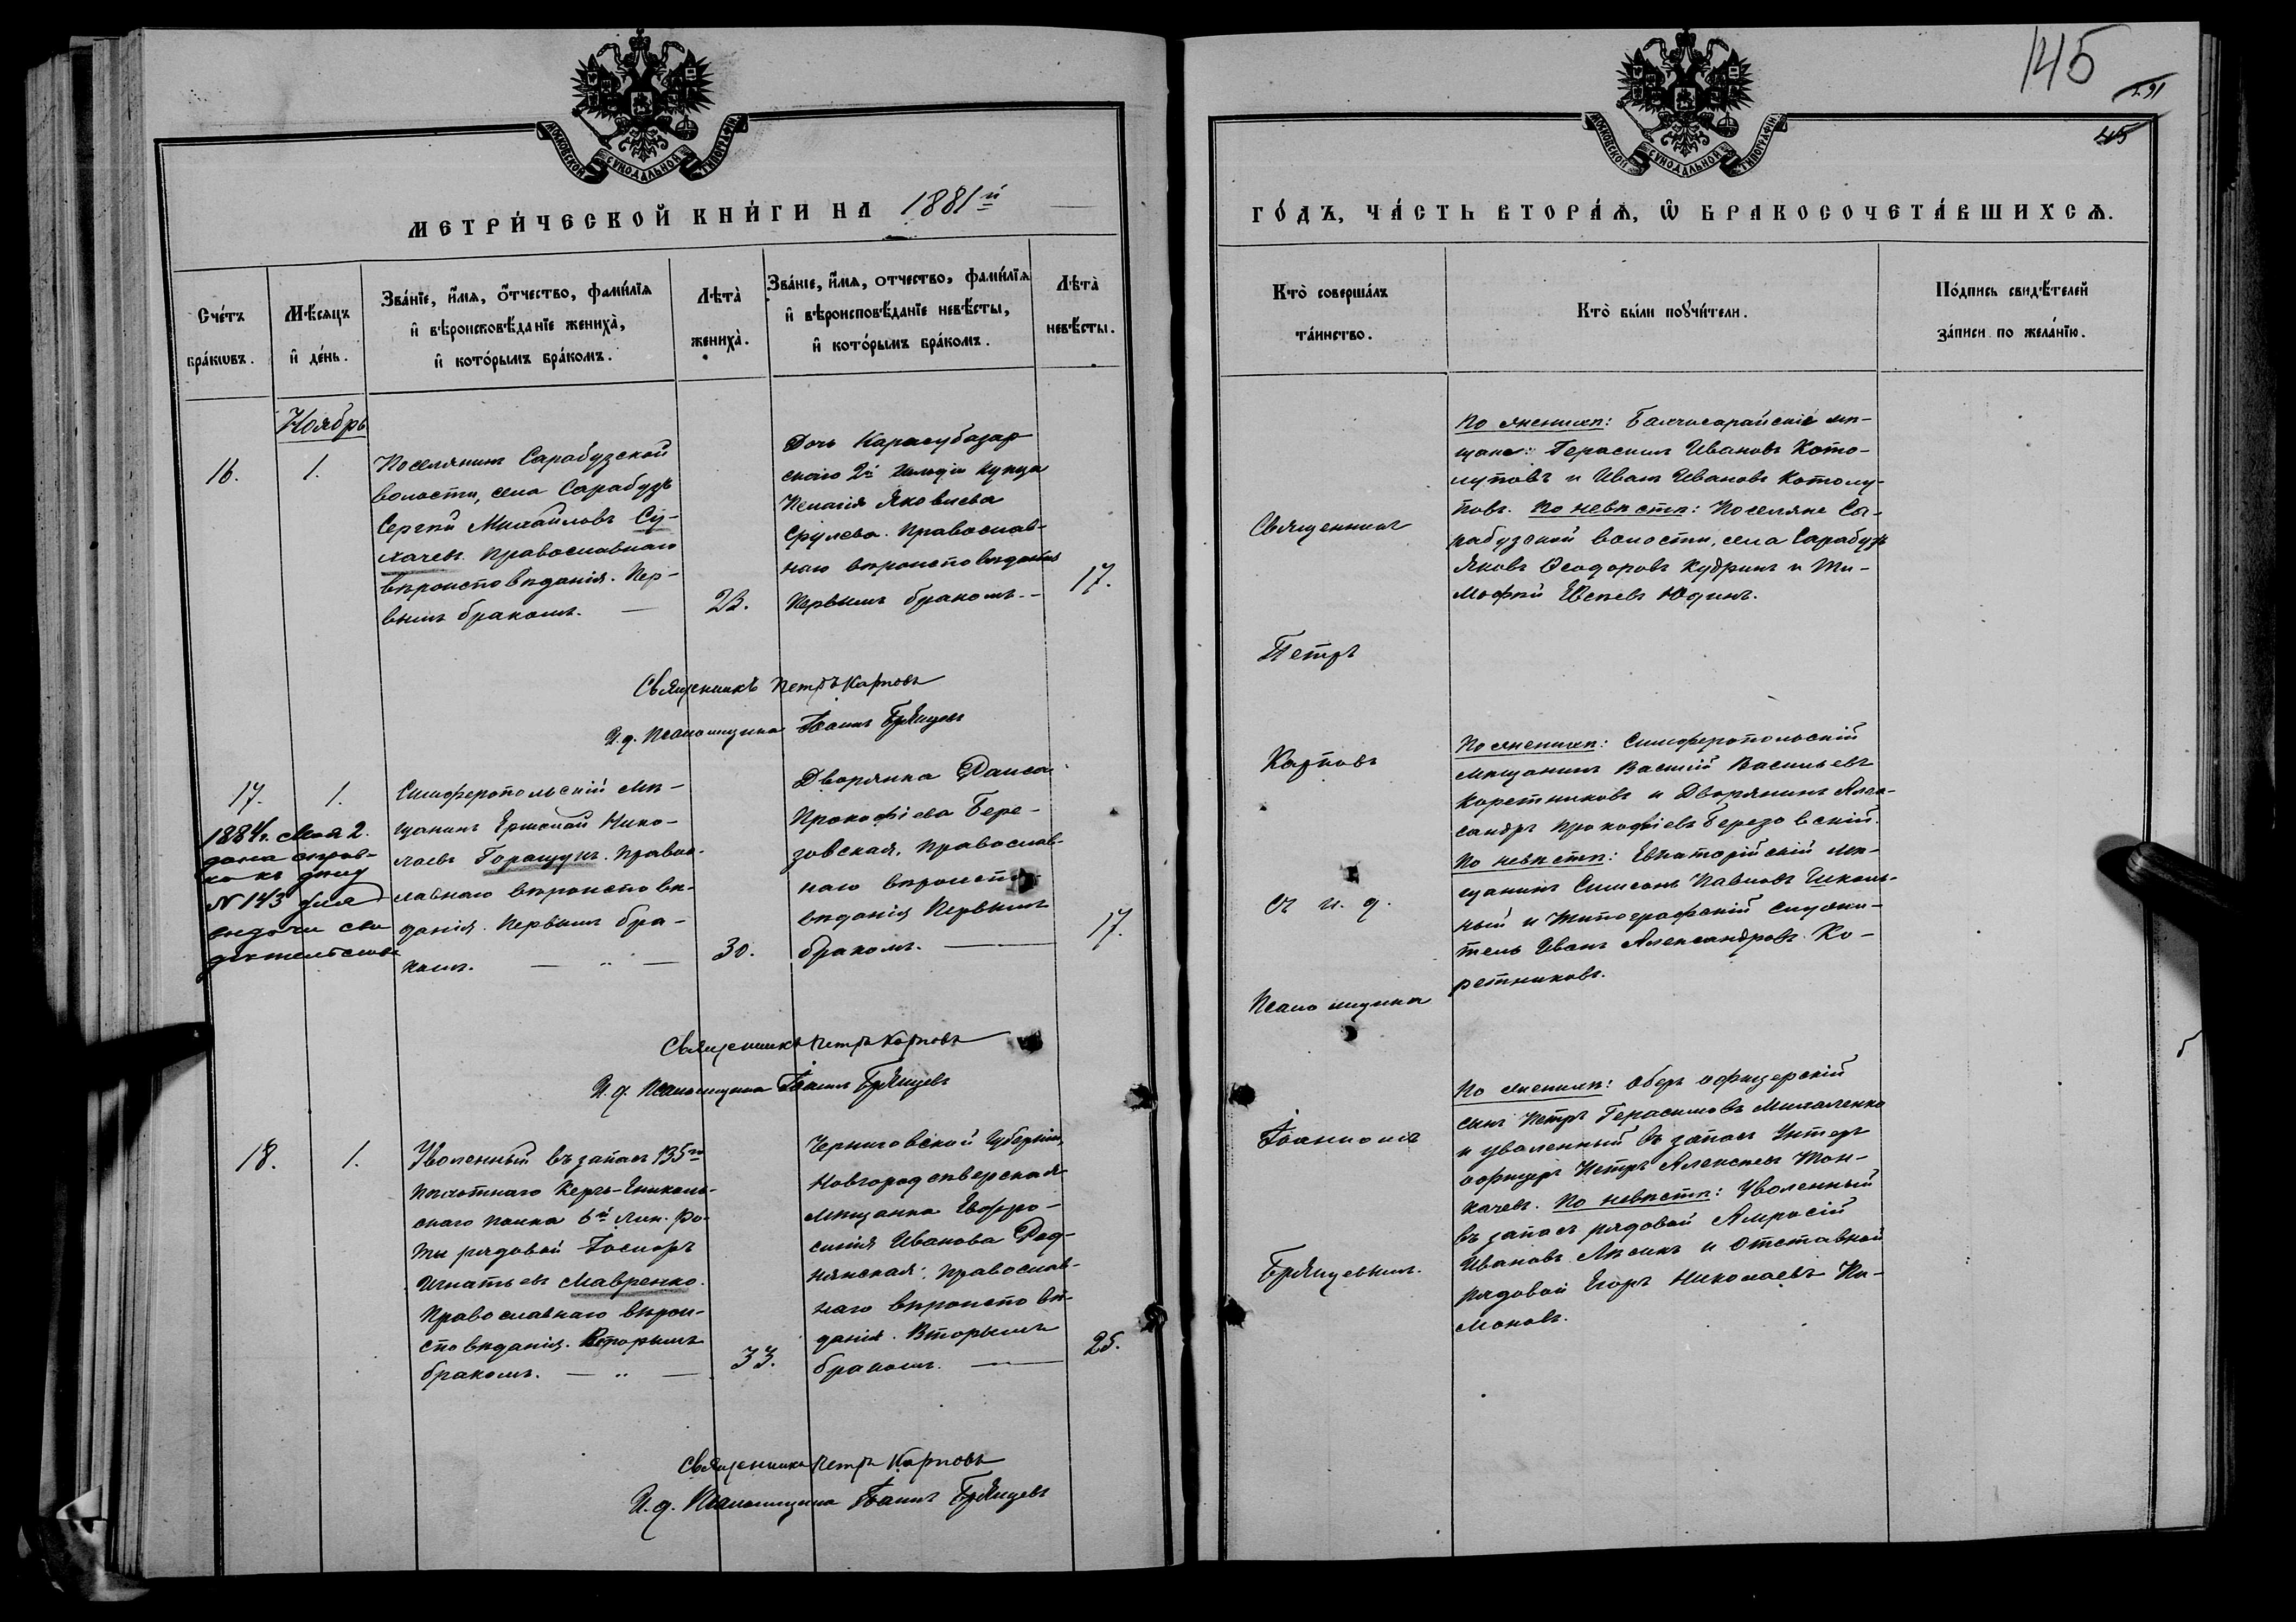 МОСКОВСКОЙ СУНОДАЛЬНОЙ ТИПОГРАФІИ
МЕТРИ́ЧЕСКОЙ КНИ́ГИ НА 1881й
Сче́тъ бра́ковъ.
Мѣ́сяцъ и҆ де́нь.
Зва́нїе, и҆́мя, ѻ҆́тчество, фами́лїя
и҆ вѣроисповѣ́данїе жениха̀,
и҆ кото́рымъ бра́комъ.
Лѣта̀ жениха̀.
Зва́нїе, и҆́мя, отчество, фами́лїя
и҆ вѣроисповѣ́данїе невѣ́сты,
и҆ кото́рымъ бра́комъ.
Лѣта̀ невѣ́сты.
Ноябрь
16.
1.
Поселянинъ Сарабузской
волости, села Сарабузъ
Сергѣй Михайловъ Су-
хачевъ. Православнаго
вѣроисповѣданія. Пер-
вымъ бракомъ. —
23.
Дочь Карасубазар
скаго 2й гильдіи купца
Пелагія Яковлева
Срулева. Православ-
наго вѣроисповѣданія
Первымъ бракомъ. -
17.
Священникъ Петръ Карповъ
И. д. Псаломщика Іоаннъ Брянцевъ
17.
1.
1884г. Мая 2.
дана справ-
ка къ дѣлу
№ 143 для
выдачи сви
дѣтельства
Симферопольскій мѣ-
щанинъ Ермолай Нико-
лаевъ Горащукъ. Правос-
лавнаго вѣроисповѣ-
данія. Первымъ бра-
комъ. — „ —
30.
Дворянка Раиса
Прокофіева Бере-
зовская, Православ-
наго вѣроиспо-
вѣданія Первымъ
бракомъ. —
17.
Священникъ Петръ Карповъ
И. д. Псаломщика Іоаннъ Брянцевъ
18.
1.
Уволенный въ запасъ 135го
пѣхотнаго Керчь-Ениколь-
скаго полка 6й лин. ро-
ты рядовой Іосифъ
Игнатьевъ Мавренко.
Православнаго вѣрои-
сповѣданія. Вторымъ
бракомъ. — „ —
33.
Черниговской Губерніи,
Новгородсѣверская
мѣщанка Евфро-
синія Иванова Род-
нянская. Православ-
наго вѣроисповѣ-
данія. Вторымъ
бракомъ. —
25.
Священникъ Петръ Карповъ
И. д. Псаломщика Іоаннъ Брянцевъ
145
291
45
МОСКОВСКОЙ СУНОДАЛЬНОЙ ТИПОГРАФІИ
ГО́ДЪ, ЧА́СТЬ ВТОРА́Я, Ѽ БРАКОСОЧЕТА́ВШИХСЯ.
Кто̀ соверша́лъ та́инство.
Кто̀ бы́ли пору́чители.
По́дпись свидѣ́телей за́писи по жела́нїю.
Священникъ
Петръ
Карповъ
съ и. д.
Псаломщика
Іоанномъ
Брянцевымъ.
По женихѣ: Бахчисарайскіе мѣ-
щане: Герасимъ Ивановъ Кото-
луповъ и Иванъ Ивановъ Котолу-
повъ. По невѣстѣ: Поселяне Са-
рабузской волости, села Сарабузъ
Яковъ Ѳеодоровъ Кудринъ и Ти-
мофѣй Евсѣевъ Юдинъ.
По женихѣ: Симферопольскій
мѣщанинъ Василій Васильевъ
Каретниковъ и Дворянинъ Алек-
сандръ Прокофіевъ Березовскій.
По невѣстѣ: Евпаторійскій мѣ-
щанинъ Симеонъ Павловъ Школь-
ный и Типографскій служи-
тель Иванъ Александровъ Ка-
ретниковъ.
По женихѣ: Оберъ офицерскій
сынъ Петръ Герасимовъ Михаленко
и уволенный въ запасъ Унтеръ
офицеръ Петръ Алексѣевъ Тол-
качевъ. По невѣстѣ: Уволенный
въ запасъ рядовой Амросій
Ивановъ Лысикъ и Отставной
рядовой Егоръ Николаевъ Ка-
моновъ.